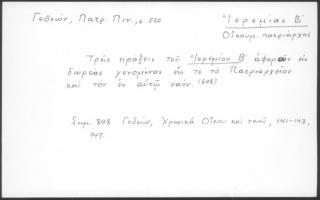 Γεδεών, Πατρ. Πιν., σ. 520
Ἱερεμίας Β΄
Οἰκουμ. πατριάρχης
Τρεῖς πράξεις τοῦ Ἱερεμίου Β΄ ἀφορῶν εἰς
δωρεὰς γενομένας ἔν τε τὸ Πατριαρχεῖον
καὶ τὸν ἐν αὐτῷ ναόν. (848)
Σημ. 848 Γεδεών, Χρονικὰ Οἴκου καὶ ναοῦ, 141-143,
147.